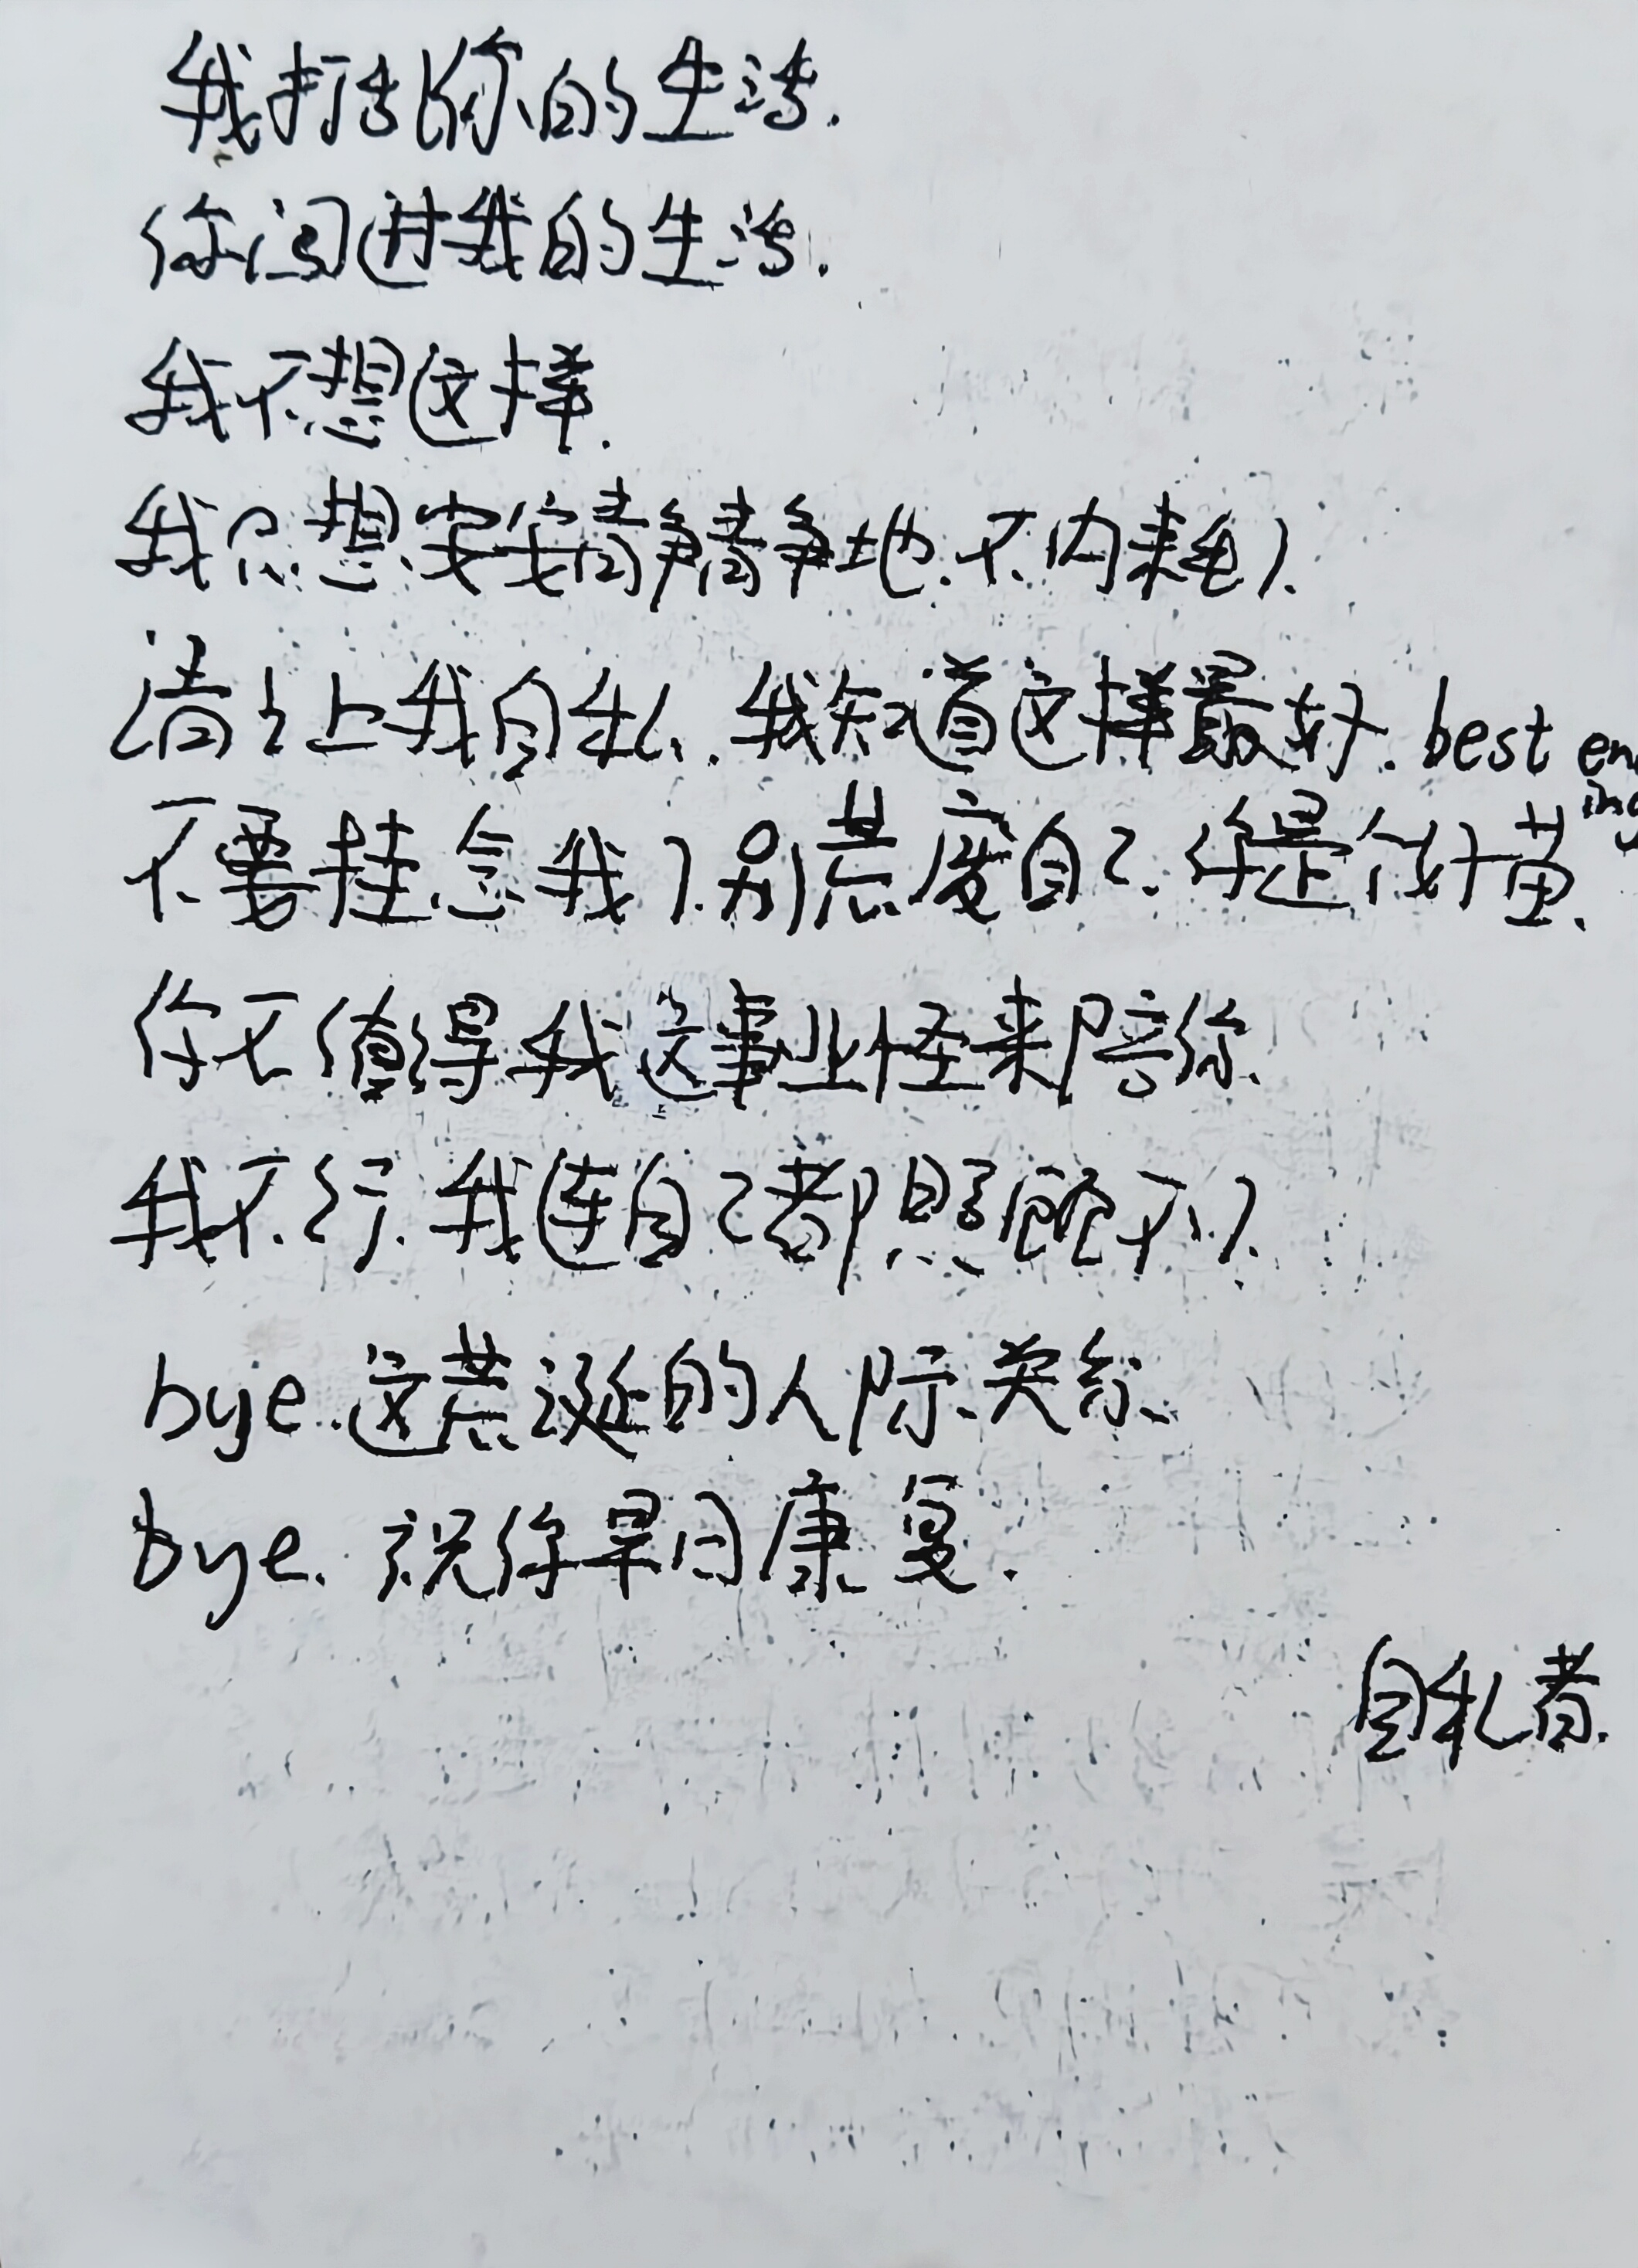 我打扰你的生活.
你闯进我的生活.
我不想这样.
我只想安安静静地.不内耗了.
请让我自私.我知道这样最好.best ending
不要挂念我了.别荒废自己.你是你好
你不值得我这事业怪来陪你.
我不行.我连自己都照顾不了.
bye.这荒诞的人际关系.
bye.祝你早日康复.
自私者.